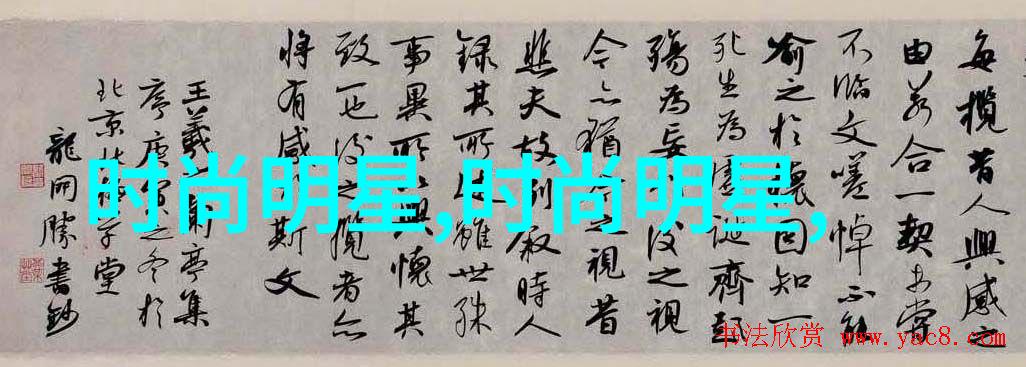 每攬昔人興感之
由若合一契未嘗
不臨文嗟悼不能
喻之於懷固知一
死生為虛誕齊彭
殤為妄作後之視
今亦猶今之視昔
悲夫故列敘時人
錄其所述雖世殊
事異所以興懷其
致一也後之攬者亦
將有感於斯文
王羲之蘭亭集
序庚寅之冬於
北京
堂
龍開勝書鈔
时尚明星,时尚明星,
书法欣赏 www.yac8.com